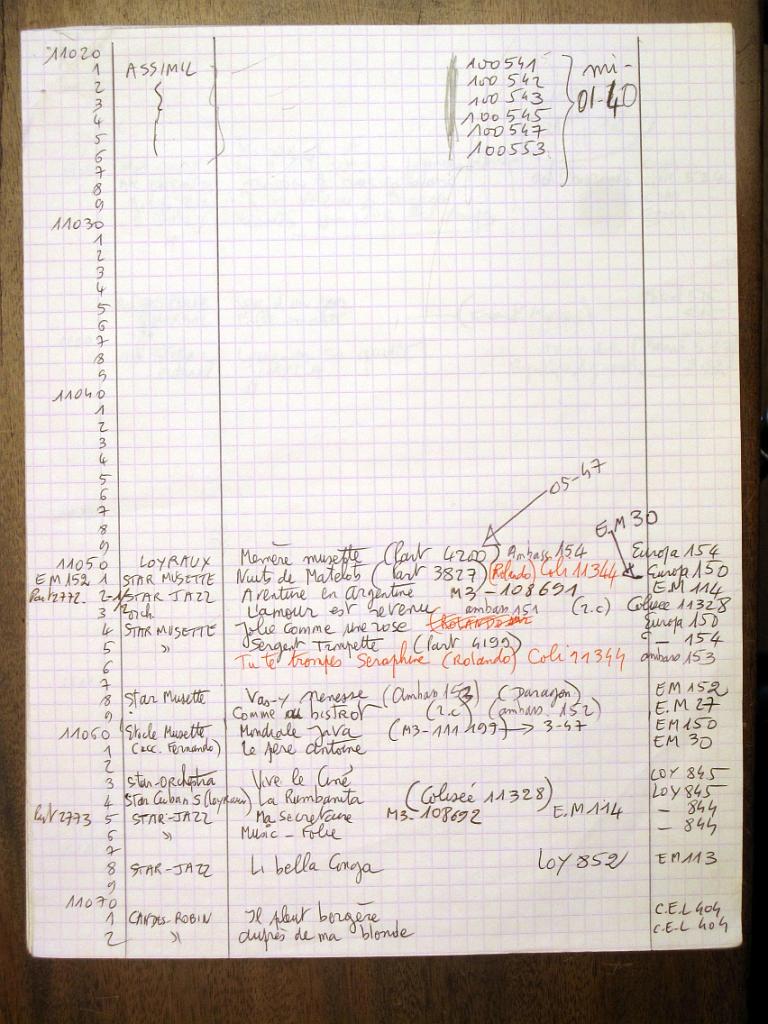 11020
1 ASSIMIL 100541 mi-
2 100542 01-40
3 100543
4 100545
5 100547
6 100553
7
8
9
11030
1
2
3
4
5
6
7
8
9
11040
1
2
3
4
5
6
7
8
9
05-47
E.M 30
11050 LOYRAUX Memère musette (Part 4200) Ambass 154 Europa 154
EM 152 1 STAR MUSETTE Nuits de Matelots (Part 3827) (Rolando) Coli 11344 Europa 150
Part 2772 2 STAR JAZZ Aventure en Argentine M3-108691 E.M 114
3 orch. L'amour est revenu ambass 151 (2.c) Colisée 11328
4 STAR MUSETTE Jolie comme une rose Europa 150
5 " Sergent Trompette (Part 4199) - 154
6 Tu te trompes Séraphine (Rolando) Coli 11344 ambass 153
7
8 Star Musette Vas-y Nenesse (Ambass 153) (Paragon) EM 152
9 Comme au bistrot (2.c) (ambass. 152) E.M 27
11060 Musette Mondiale Java (M3-111 199) → 3-47 EM 150
1 (acc. Fernando) Le père Antoine EM 30
2
3 Star-Orchestra Vive le Ciné LOY 845
4 Star Cubans (Loyraux) La Rumbanita (Colisée 11328) LOY 845
Part 2773 5 STAR-JAZZ Ma Secrétaire M3-108692 E.M 114 - 844
6 " Music-Folie - 844
7
8 STAR-JAZZ Li bella Conga LOY 852 EM 113
9
11070
1 CANDES-ROBIN Il pleut bergère C.E.L 404
2 " Auprès de ma blonde C.E.L 404